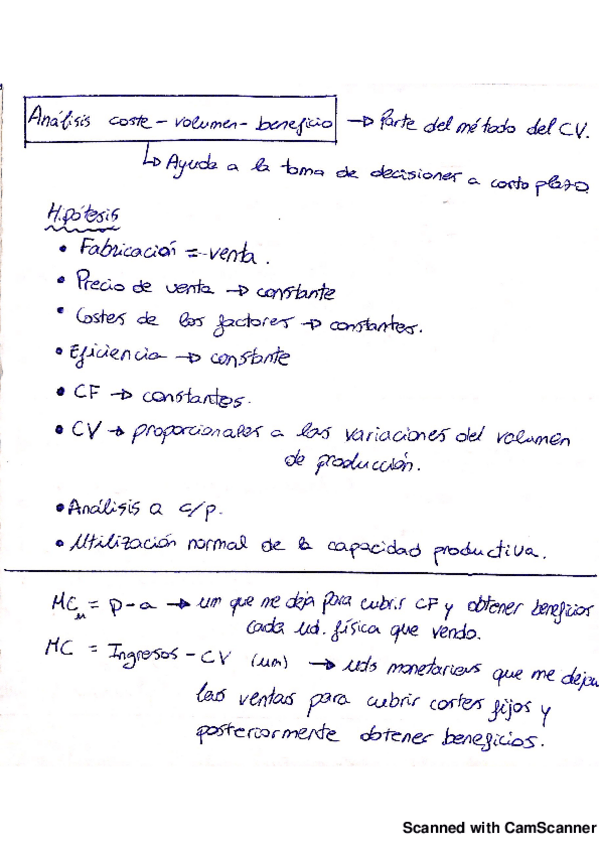 Análisis coste - volumen - beneficio → Parte del método del CV.
↳ Ayuda a la toma de decisiones a corto plazo.
Hipótesis
• Fabricación = venta.
• Precio de venta → constante
• Costes de los factores → constantes.
• Eficiencia → constante
• CF → constantes.
• CV → proporcionales a las variaciones del volumen
de producción.
• Análisis a c/p.
• Utilización normal de la capacidad productiva.
MCu = p - a → um que me deja para cubrir CF y obtener beneficios
cada ud. física que vendo.
MC = Ingresos - CV (um) → uds monetarias que me dejan
las ventas para cubrir costes fijos y
posteriormente obtener beneficios.
Scanned with CamScanner